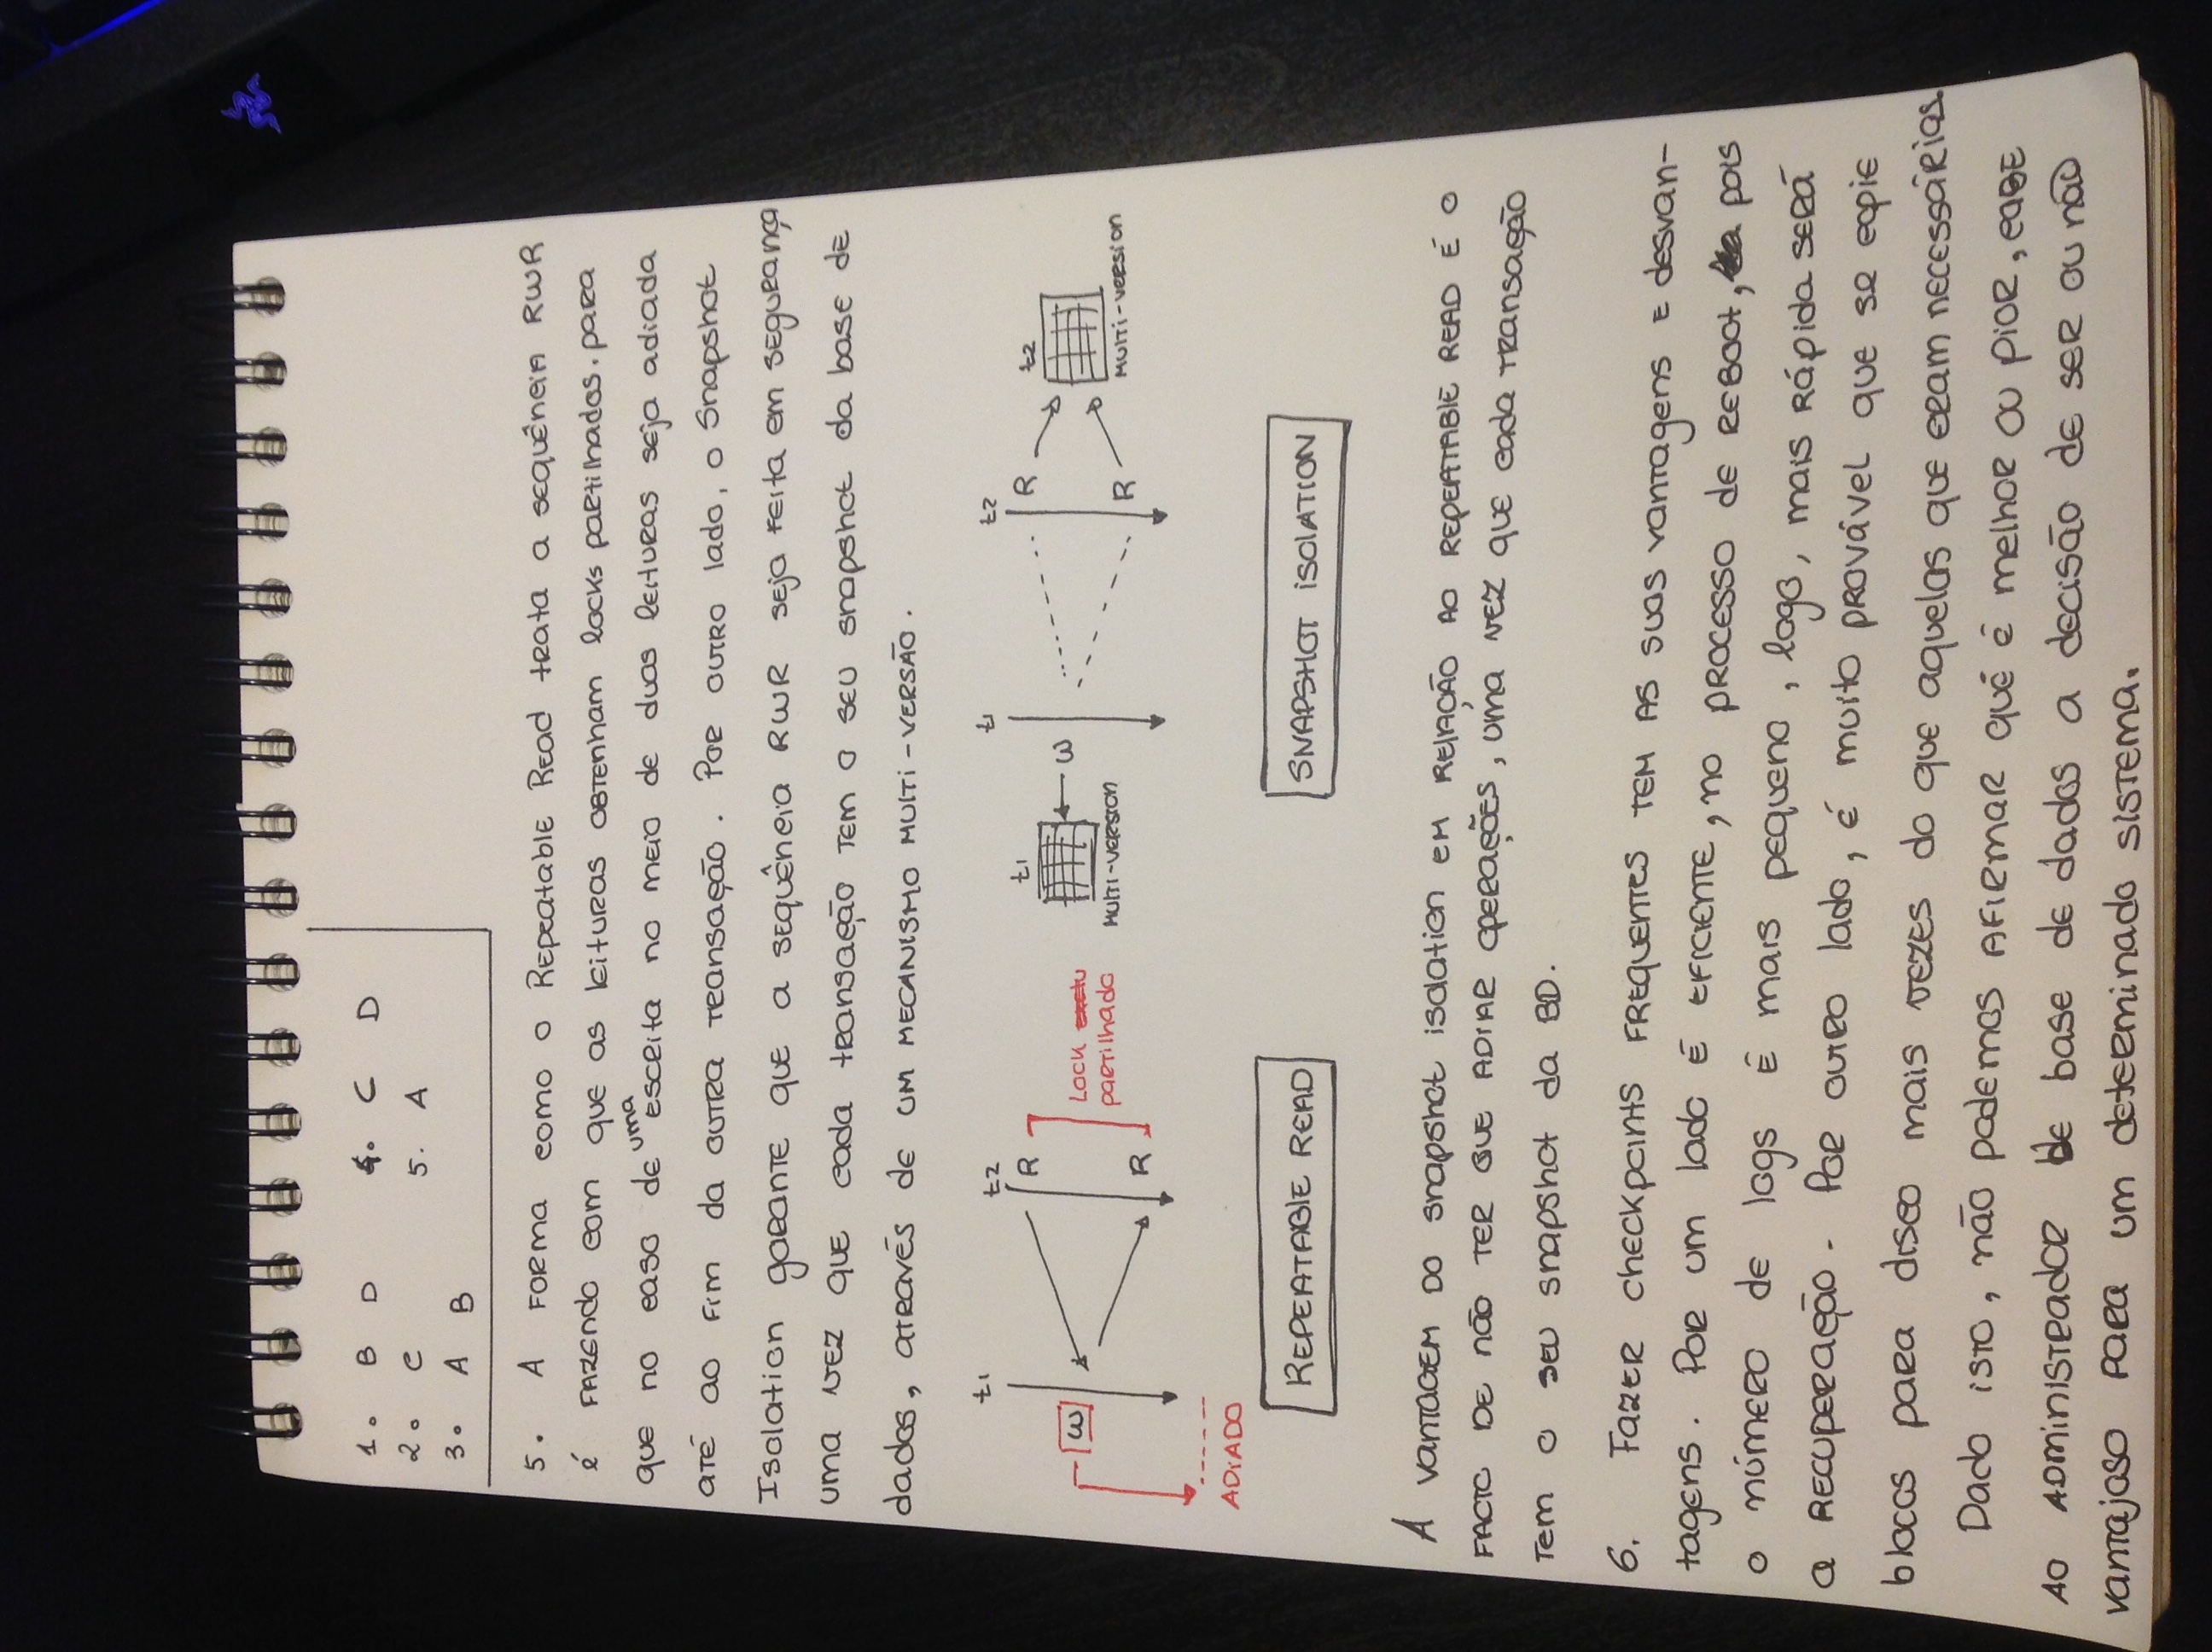 1. B D 4. C D
2. C 5. A
3. A B
5. A forma como o Repeatable Read trata a sequência RWR
é fazendo com que as leituras obtenham locks partilhados. para
que no caso de uma escrita no meio de duas leituras seja adiada
até ao fim da outra transação. Por outro lado, o Snapshot
Isolation garante que a sequência RWR seja feita em segurança
uma vez que cada transação tem o seu snapshot da base de
dados, através de um mecanismo multi-versão.
t1 t2 t1 t2
R t1 R t2
W Lock partilhado W
R MULTI-VERSION R MULTI-VERSION
ADIADO
REPEATABLE READ SNAPSHOT ISOLATION
A vantagem do snapshot isolation em relação ao repeatable read é o
facto de não ter que adiar operações, uma vez que cada transação
tem o seu snapshot da BD.
6. Fazer checkpoints frequentes tem as suas vantagens e desvan-
tagens. Por um lado é eficiente, no processo de reboot, pois
o número de logs é mais pequeno, logo, mais rápida será
a recuperação. Por outro lado, é muito provável que se copie
blocos para disco mais vezes do que aquelas que eram necessárias.
Dado isto, não podemos afirmar qué é melhor ou pior, cabe
ao administrador de base de dados a decisão de ser ou não
vantajoso para um determinado sistema.